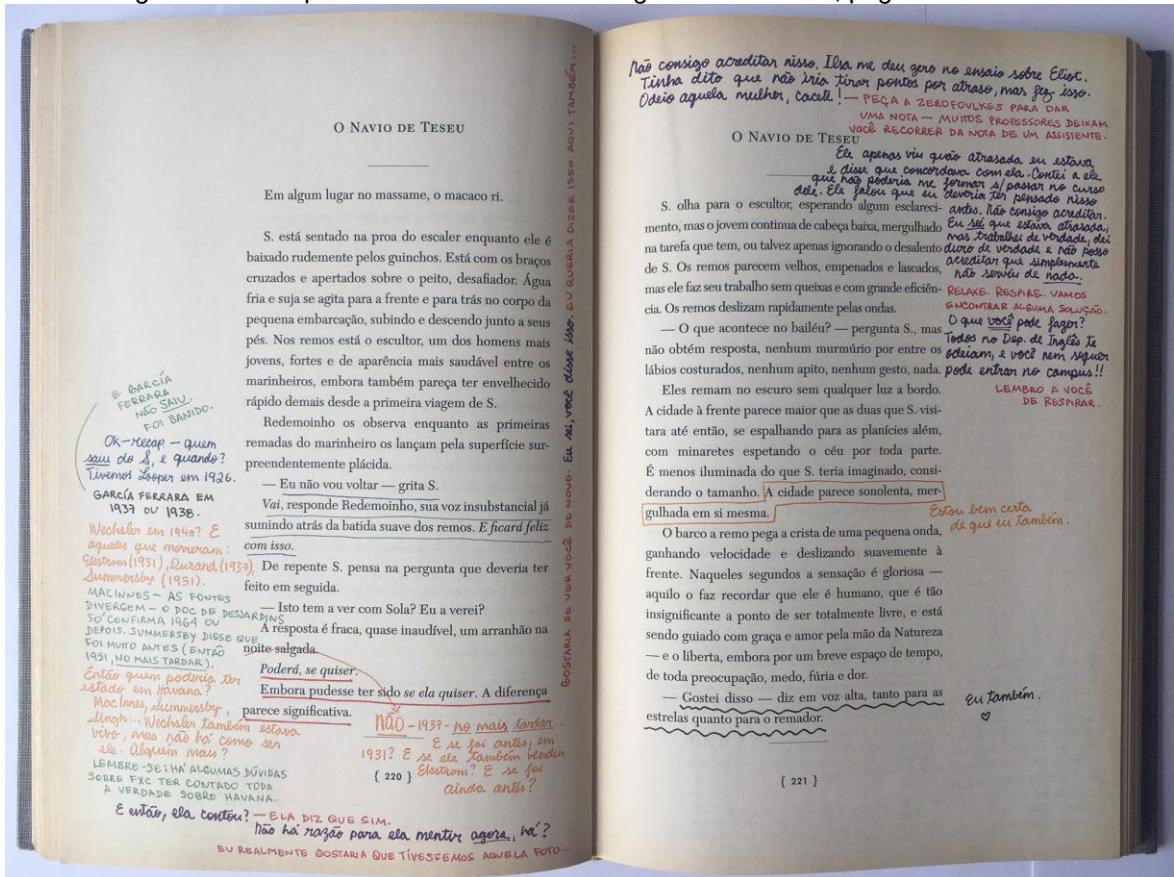 O NAVIO DE TESEU
Em algum lugar no massame, o macaco ri.
S. está sentado na proa do escaler enquanto ele é
baixado rudemente pelos guinchos. Está com os braços
cruzados e apertados sobre o peito, desafiador. Água
fria e suja se agita para a frente e para trás no corpo da
pequena embarcação, subindo e descendo junto a seus
pés. Nos remos está o escultor, um dos homens mais
jovens, fortes e de aparência mais saudável entre os
marinheiros, embora também pareça ter envelhecido
rápido demais desde a primeira viagem de S.
Redemoinho os observa enquanto as primeiras
remadas do marinheiro os lançam pela superfície sur-
preendentemente plácida.
— Eu não vou voltar — grita S.
Vai, responde Redemoinho, sua voz insubstancial já
sumindo atrás da batida suave dos remos. E ficará feliz
com isso.
De repente S. pensa na pergunta que deveria ter
feito em seguida.
— Isto tem a ver com Sola? Eu a verei?
A resposta é fraca, quase inaudível, um arranhão na
noite salgada.
Poderá, se quiser.
Embora pudesse ter sido se ela quiser. A diferença
parece significativa.
{ 220 }
E GARCÍA
FERRARA
NÃO SAIU.
FOI BANIDO.
Ok—recap — quem
saiu do S, e quando?
Tivemos Looper em 1926.
GARCÍA FERRARA EM
1937 OU 1938.
Wechsler em 1940? E
aqueles que morreram:
Ekstrom (1931), Durand (1937),
Summersby (1951).
MACINNES — AS FONTES
DIVERGEM — O DOC DE DESJARDINS
SÓ CONFIRMA 1964 OU
DEPOIS. SUMMERSBY DISSE QUE
FOI MUITO ANTES (ENTÃO
1951, NO MAIS TARDAR).
Então quem poderia ter
estado em Havana?
MacInnes, Summersby,
Singh... Wechsler também estava
vivo, mas não há como ser
ele. Alguém mais?
LEMBRE-SE: HÁ ALGUMAS DÚVIDAS
SOBRE FXC TER CONTADO TODA
A VERDADE SOBRE HAVANA.
E então, ela contou? — ELA DIZ QUE SIM.
Não há razão para ela mentir agora, há?
EU REALMENTE GOSTARIA QUE TÍVESSEMOS AQUELA FOTO...
não — 1937 — no mais tardar.
E se foi antes, em
1931? E se ele também vendeu
Ekstrom? E se foi
ainda antes?
GOSTARIA DE VER VOCÊ DE NOVO. Eu sei, você disse isso. EU QUERIA DIZER ISSO AQUI TAMBÉM...
Não consigo acreditar nisso. Ilsa me deu zero no ensaio sobre Eliot.
Tinha dito que não iria tirar pontos por atraso, mas fez isso.
Odeio aquela mulher, cacete! — PEÇA A ZEROFOULKES PARA DAR
UMA NOTA — MUITOS PROFESSORES DEIXAM
VOCÊ RECORRER DA NOTA DE UM ASSISTENTE.
O NAVIO DE TESEU
Ele apenas viu quão atrasada eu estava
e disse que concordava com ela. Contei a ele
que não poderia me formar s/ passar no curso
dele. Ele falou que eu deveria ter pensado nisso
antes. Não consigo acreditar.
Eu sei que estava atrasada,
mas trabalhei de verdade, dei
duro de verdade e não posso
acreditar que simplesmente
não serviu de nada.
RELAXE. RESPIRE. VAMOS
ENCONTRAR ALGUMA SOLUÇÃO.
O que você pode fazer?
Todos no Dep. de Inglês te
odeiam, e você nem sequer
pode entrar no campus!!
LEMBRO A VOCÊ
DE RESPIRAR.
S. olha para o escultor, esperando algum esclareci-
mento, mas o jovem continua de cabeça baixa, mergulhado
na tarefa que tem, ou talvez apenas ignorando o desalento
de S. Os remos parecem velhos, empenados e lascados,
mas ele faz seu trabalho sem queixas e com grande eficiên-
cia. Os remos deslizam rapidamente pelas ondas.
— O que acontece no bailéu? — pergunta S., mas
não obtém resposta, nenhum murmúrio por entre os
lábios costurados, nenhum apito, nenhum gesto, nada.
Eles remam no escuro sem qualquer luz a bordo.
A cidade à frente parece maior que as duas que S. visi-
tara até então, se espalhando para as planícies além,
com minaretes espetando o céu por toda parte.
É menos iluminada do que S. teria imaginado, consi-
derando o tamanho. A cidade parece sonolenta, mer-
gulhada em si mesma.
Estou bem certa
de que eu também.
O barco a remo pega a crista de uma pequena onda,
ganhando velocidade e deslizando suavemente à
frente. Naqueles segundos a sensação é gloriosa —
aquilo o faz recordar que ele é humano, que é tão
insignificante a ponto de ser totalmente livre, e está
sendo guiado com graça e amor pela mão da Natureza
— e o liberta, embora por um breve espaço de tempo,
de toda preocupação, medo, fúria e dor.
— Gostei disso — diz em voz alta, tanto para as
estrelas quanto para o remador.
Eu também.
♡
{ 221 }